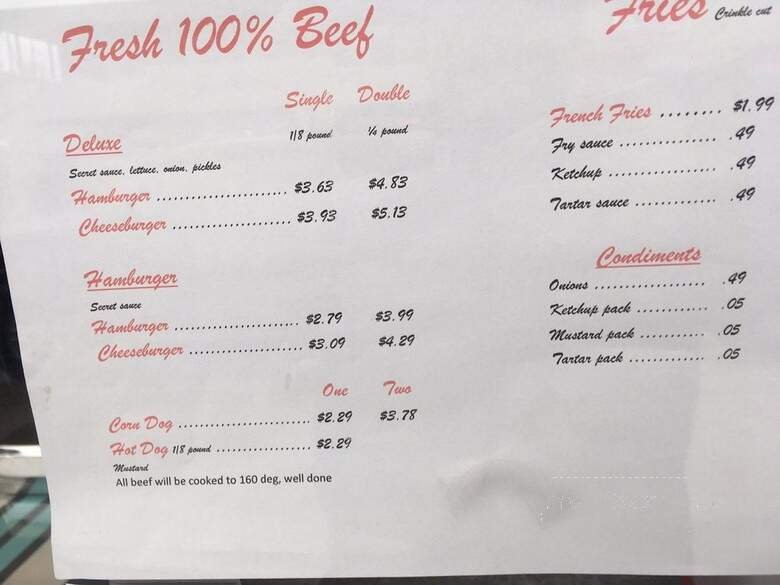 Fresh 100% Beef
Single Double
1/8 pound ¼ pound
Deluxe
Secret sauce, lettuce, onion, pickles
Hamburger ........................ $3.63 $4.83
Cheeseburger ..................... $3.93 $5.13
Hamburger
Secret sauce
Hamburger ......................... $2.79 $3.99
Cheeseburger ...................... $3.09 $4.29
One Two
Corn Dog ........................... $2.29 $3.78
Hot Dog 1/8 pound ................... $2.29
Mustard
All beef will be cooked to 160 deg, well done
Fries Crinkle cut
French Fries ........ $1.99
Fry sauce ............... .49
Ketchup ................. .49
Tartar sauce ............. .49
Condiments
Onions .................... .49
Ketchup pack ............. .05
Mustard pack ............. .05
Tartar pack .............. .05